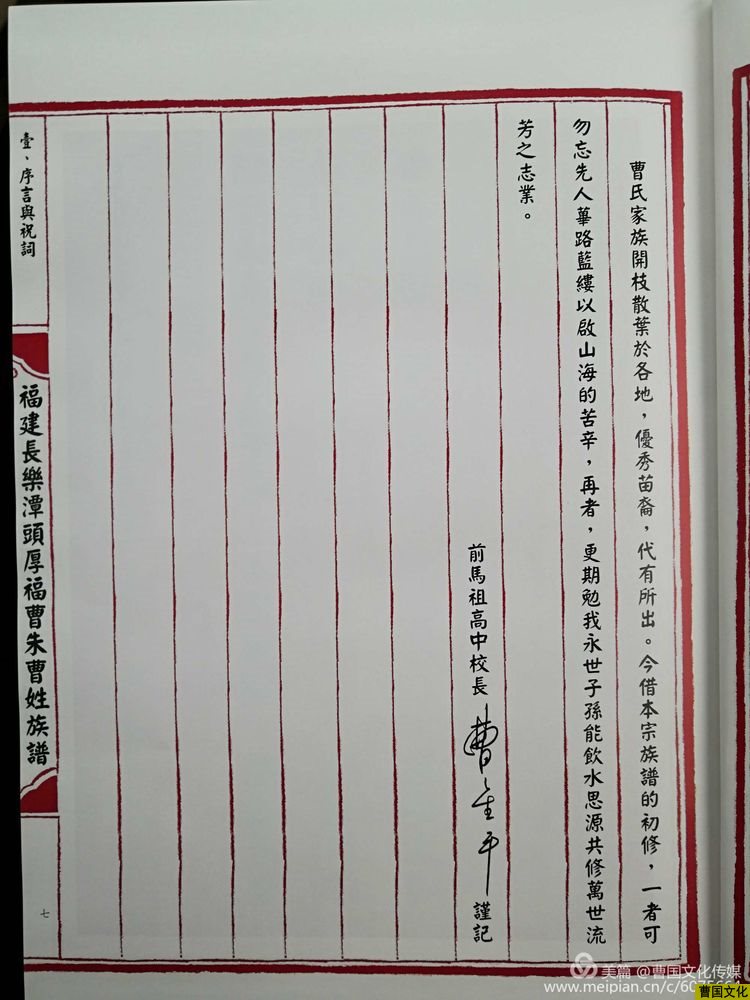 曹氏家族開枝散葉於各地，優秀苗裔，代有所出。今借本宗族譜的初修，一者可
勿忘先人蓽路藍縷以啟山海的苦辛，再者，更期勉我永世子孫能飲水思源共修萬世流
芳之志業。
前馬祖高中校長 曹金平 謹記
壹、序言與祝詞
福建長樂潭頭厚福曹朱曹姓族譜
七
美篇 @曹国文化传媒
www.meipian.cn/c/607566
曹国文化